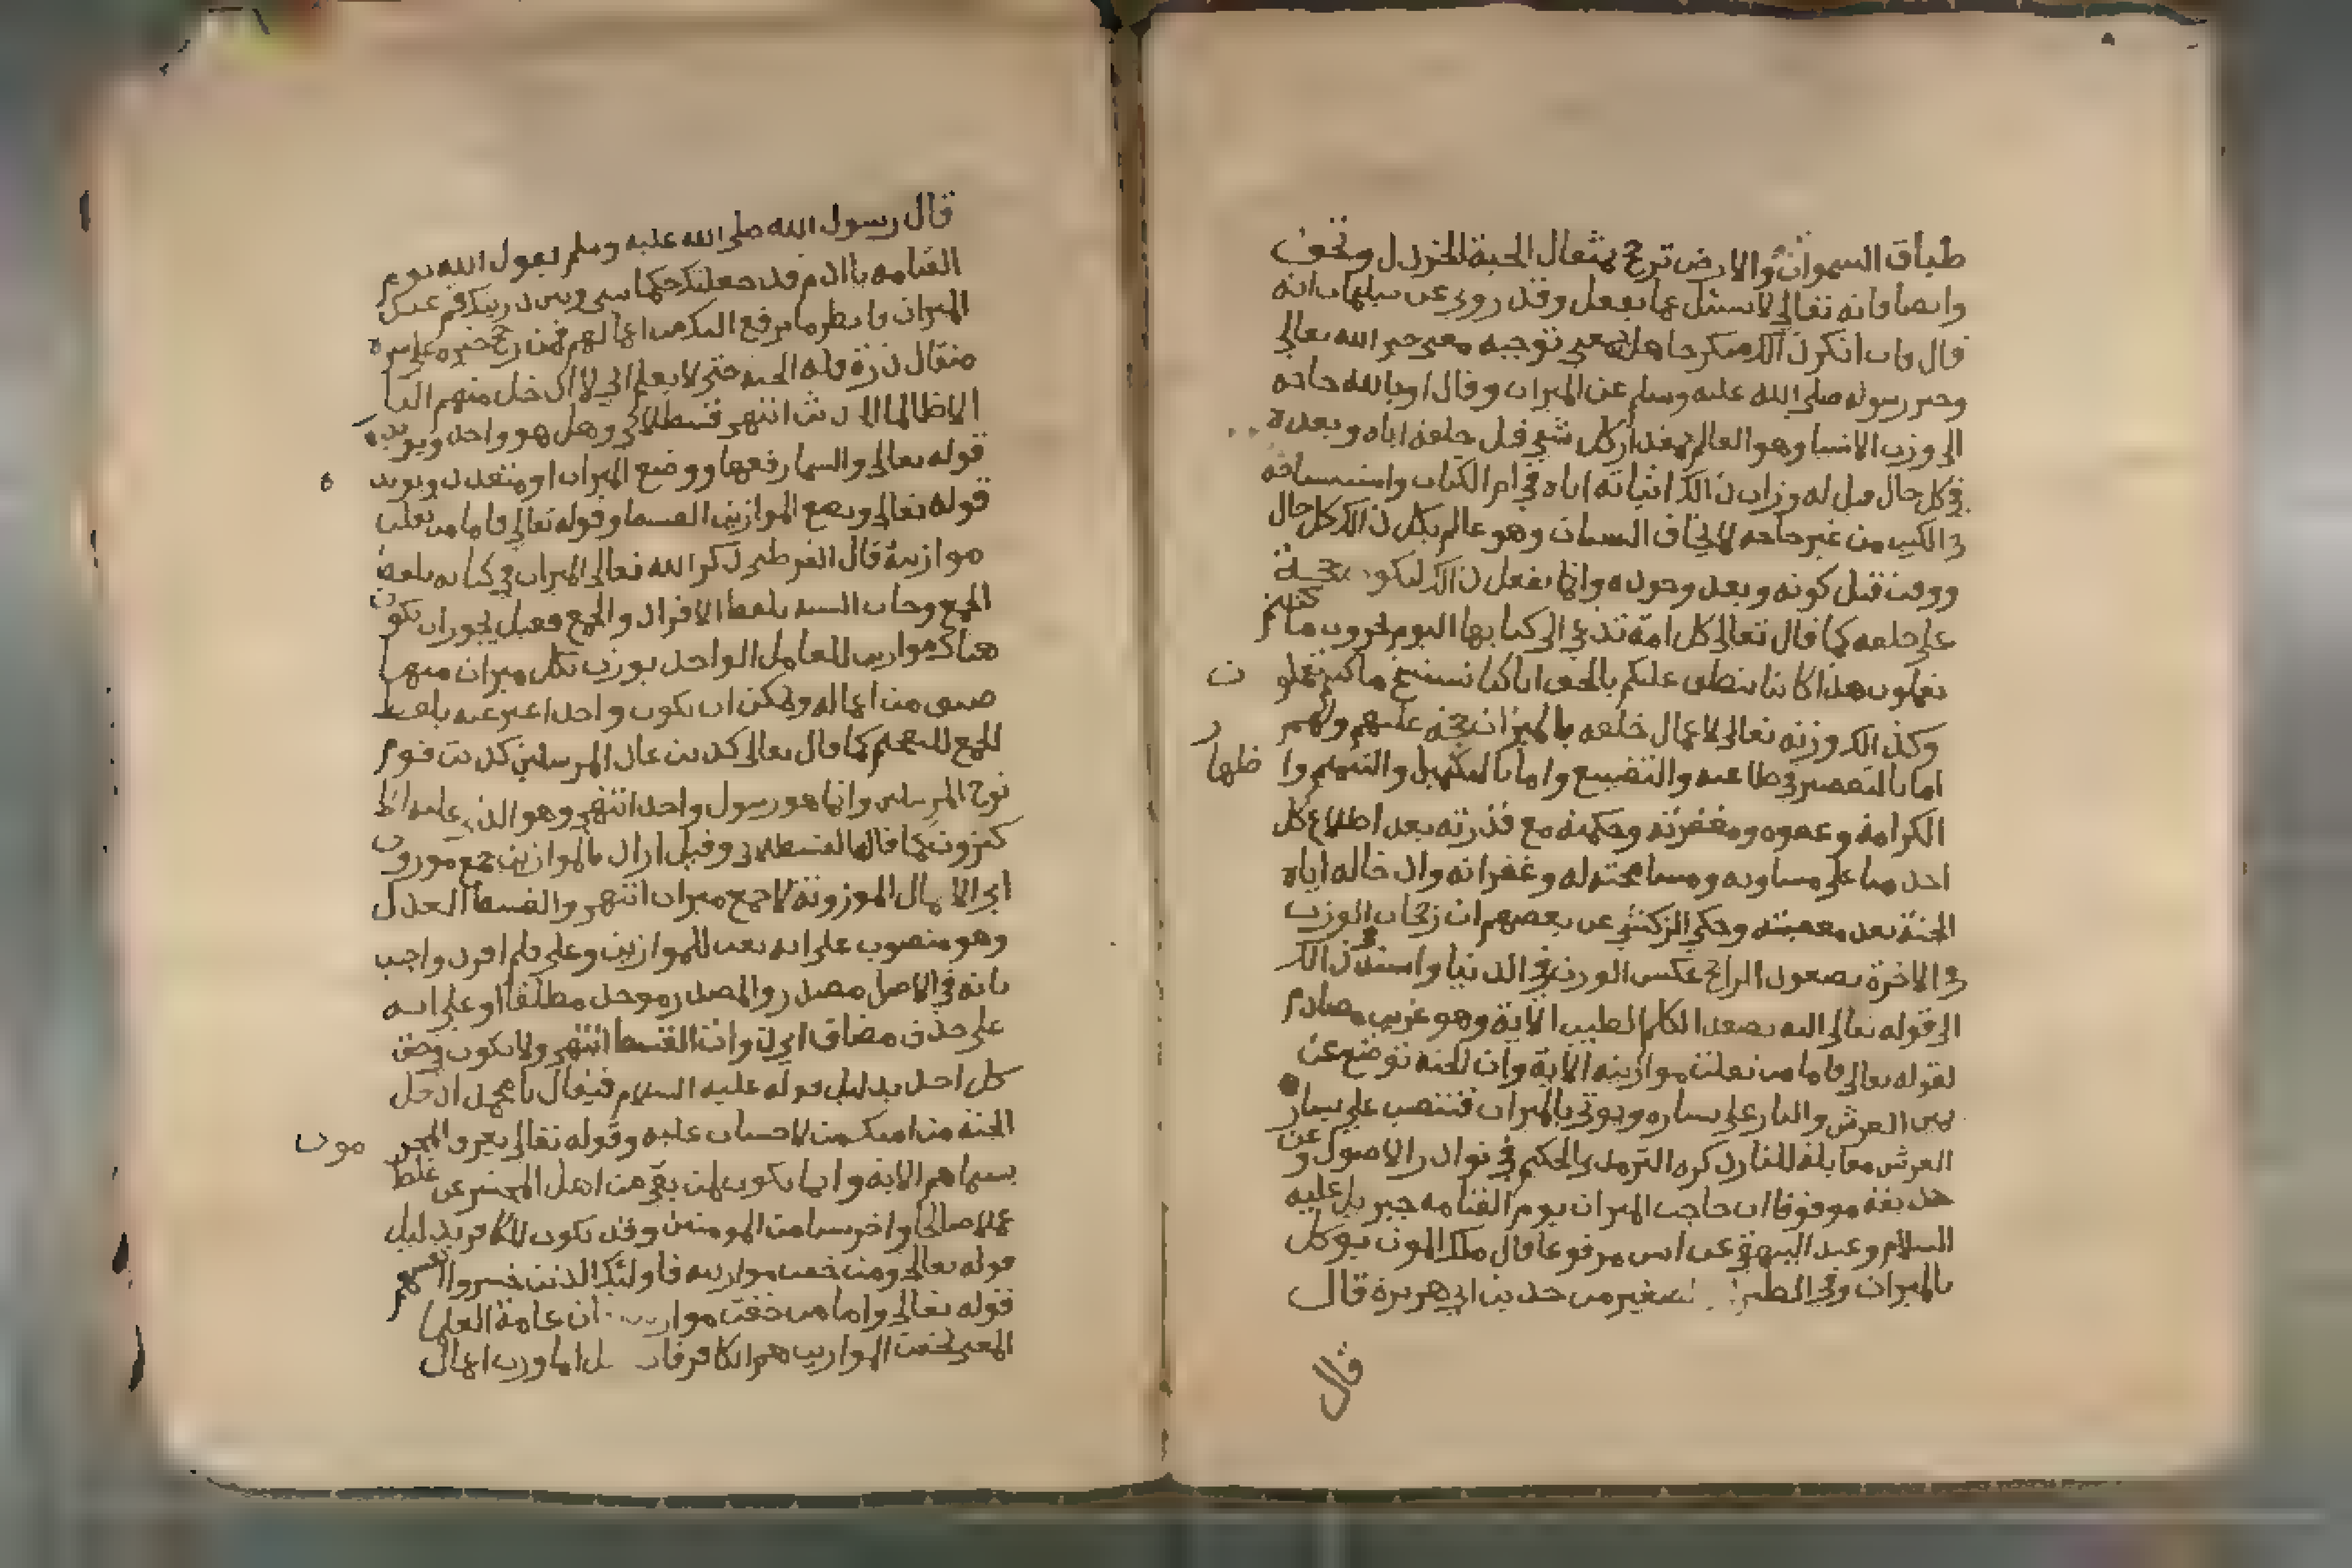 طباق السموات والارض ترجح بمثقال الحبة الخردل وتخف
وايضا فانه تعالى لا يسئل عما يفعل وقد روي عن سلمان انه
قال فان انكر ذلك منكر جاهل بمعنى توجيه معنى خبر الله تعالى
وخبر رسوله صلى الله عليه وسلم عن الميزان وقال او بالله حاجه
الى وزن الاشيا وهو العالم بمقدار كل شي قبل خلقه اياه وبعده
في كل حال قيل له وزان ذلك اثباته اياه في ام الكتاب واستنساخه
في الكتب من غير حاجه لا يخاف النسيان وهو عالم بكل ذلك كل حال
ووقت قبل كونه وبعد وجوده وانما يفعل ذلك ليكون حجة
على خلقه كما قال تعالى كل امة تدعى الى كتابها اليوم تجزون ما كنتم
تعملون هذا كتابنا ينطق عليكم بالحق انا كنا نستنسخ ما كنتم تعملون
وكذلك وزنه تعالى لاعمال خلقه بالميزان حجة عليهم ولهم
اما بالتقصير في طاعته والتضييع واما بالتكميل والتتميم واظهار
الكرامة وعفوه ومغفرته وحكمته مع قدرته بعد اطلاع كل
احد منا على مساويه ومسامحته له وغفرانه وادخاله اياه
الجنة بعد معصيته وحكى الزركشي عن بعضهم ان رجحان الوزن
في الاخرة بصعود الراجح عكس الوزن في الدنيا واستند في ذلك
الى قوله تعالى اليه يصعد الكلم الطيب الآية وهو غريب مصادم
لقوله تعالى فاما من ثقلت موازينه الاية وان الجنه توضع عن
يمين العرش والنار على يساره ويوتى بالميزان فتنصب على يسار
العرش مقابلة للنار ذكره الترمذي الحكيم في نوادر الاصول وعن
حذيفة موقوفا ان صاحب الميزان يوم القيامه جبريل عليه
السلام وعند البيهقي عن انس مرفوعا قال ملك الموت يوكل
بالميزان وفي الطبراني الصغير من حديث ابي هريرة قال
قال
قال رسول الله صلى الله عليه وسلم يقول الله يوم
القيامه يا ادم قد جعلتك حكما بيني وبين ذريتك قم عند
الميزان فانظر ما يرفع اليك من اعمالهم فمن رجح خيره على شره
مثقال ذرة فله الجنه حتى لا يعلم اني لا ادخل منهم النار
الا ظالما الحديث انتهى قسطلاني وهل هو واحد ويويده
قوله تعالى والسما رفعها ووضع الميزان او متعدد ويويد
قوله تعالى ونضع الموازين القسط وقوله تعالى فاما من ثقلت
موازينه قال القرطبي ذكر الله تعالى الميزان في كتابه بلفظ
الجمع وجات السنه بلفظ الافراد والجمع فقيل يجوز ان يكون
هناك موازين للعامل الواحد يوزن بكل ميزان منها
صنف من اعماله ويمكن ان يكون واحدا عبر عنه بلفظ
الجمع للتفخيم كما قال تعالى كذبت عاد المرسلين كذبت قوم
نوح المرسلين وانما هو رسول واحد انتهى وهو الذي عليه الا
كثرون كما قاله القسطلاني وقيل اراد بالموازين جمع موزون
اي الاعمال الموزونة لا جمع ميزان انتهى والقسط العدل
وهو منصوب على انه نعت للموازين وعلى فلم افرد واجيب
بانه في الاصل مصدر والمصدر يوحد مطلقا او على انه
على حذف مضاف اي ذوات القسط انتهى ولا يكون في حق
كل احد بدليل قوله عليه السلام فيقال يا محمد ادخل
الجنة من امتك من لا حساب عليه وقوله تعالى يعرف المجرمون
بسيماهم الاية وانما يكون لمن بقي من اهل المحشر ممن خلط
عملا صالحا واخر سيا من المومنين وقد يكون للكافر بدليل
قوله تعالى ومن خفت موازينه فاولئك الذين خسروا انفسهم
قوله تعالى واما من خفت موازينه ان عامة العلما
المعنى بخفت الموازين هم الكافر فان اما وزن اعمال